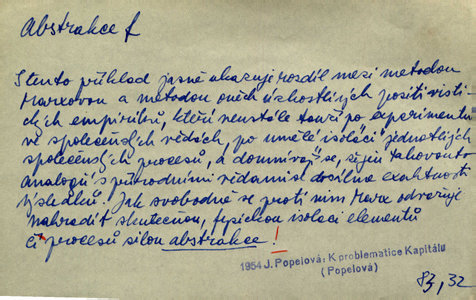 Abstrakce f
I tento příklad jasně ukazuje rozdíl mezi metodou
Marxovou a metodou oněch úzkostlivých positivisti-
ckých empiriků, kteří neustále touží po experimentu
ve společenských vědách, po umělé isolaci jednotlivých
společenských procesů, a domnívají se, že jen takovouto
analogií s přírodními vědami se dosáhne exaktnosti
výsledků. Jak svobodně se proti nim Marx odvažuje
nahradit skutečnou, fysickou isolaci elementů
či procesů silou abstrakce!
1954 J. Popelová: K problematice Kapitálu
(Popelová)
83, 32